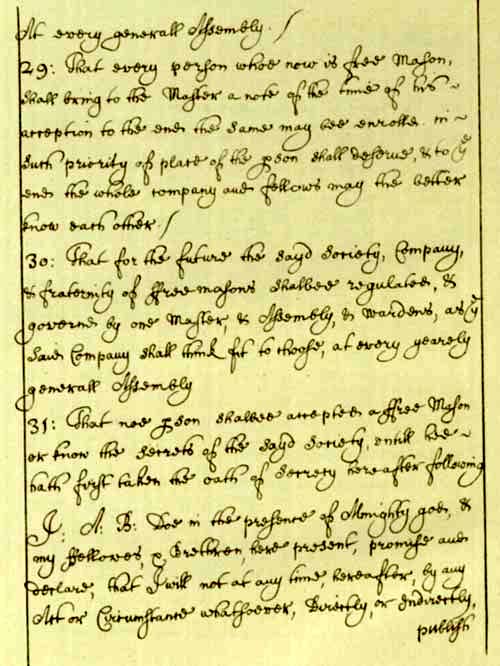 At every generall Assembly. /
29: That every person whoe now is ffree Mason,
shall bring to the Master a note of the time of his ~
acception to the end the same may bee enrolled in ~
such priority of place of the pson shall deserve, & to ye
end the whole company and fellows may the better
know each other /
30: That for the future the sayd Society, Company,
& fraternity of ffree masons shalbee regulated, &
governed by one Master, & Assembly, & Wardens, as ye
said Company shall think fit to choose, at every yearely
generall Assembly
31: That noe pson shalbee accepted a ffree Mason
or know the secrets of the sayd Society, untill hee ~
hath first taken the oath of secrecy hereafter following
I: A: B: Doe in the presence of Almighty god, &
my ffellowes, & Brethren, here present, promise and
declare, that I will not at any time, hereafter, by any
Act or Circumstance whatsoever, Directly, or Indirectly,
publish